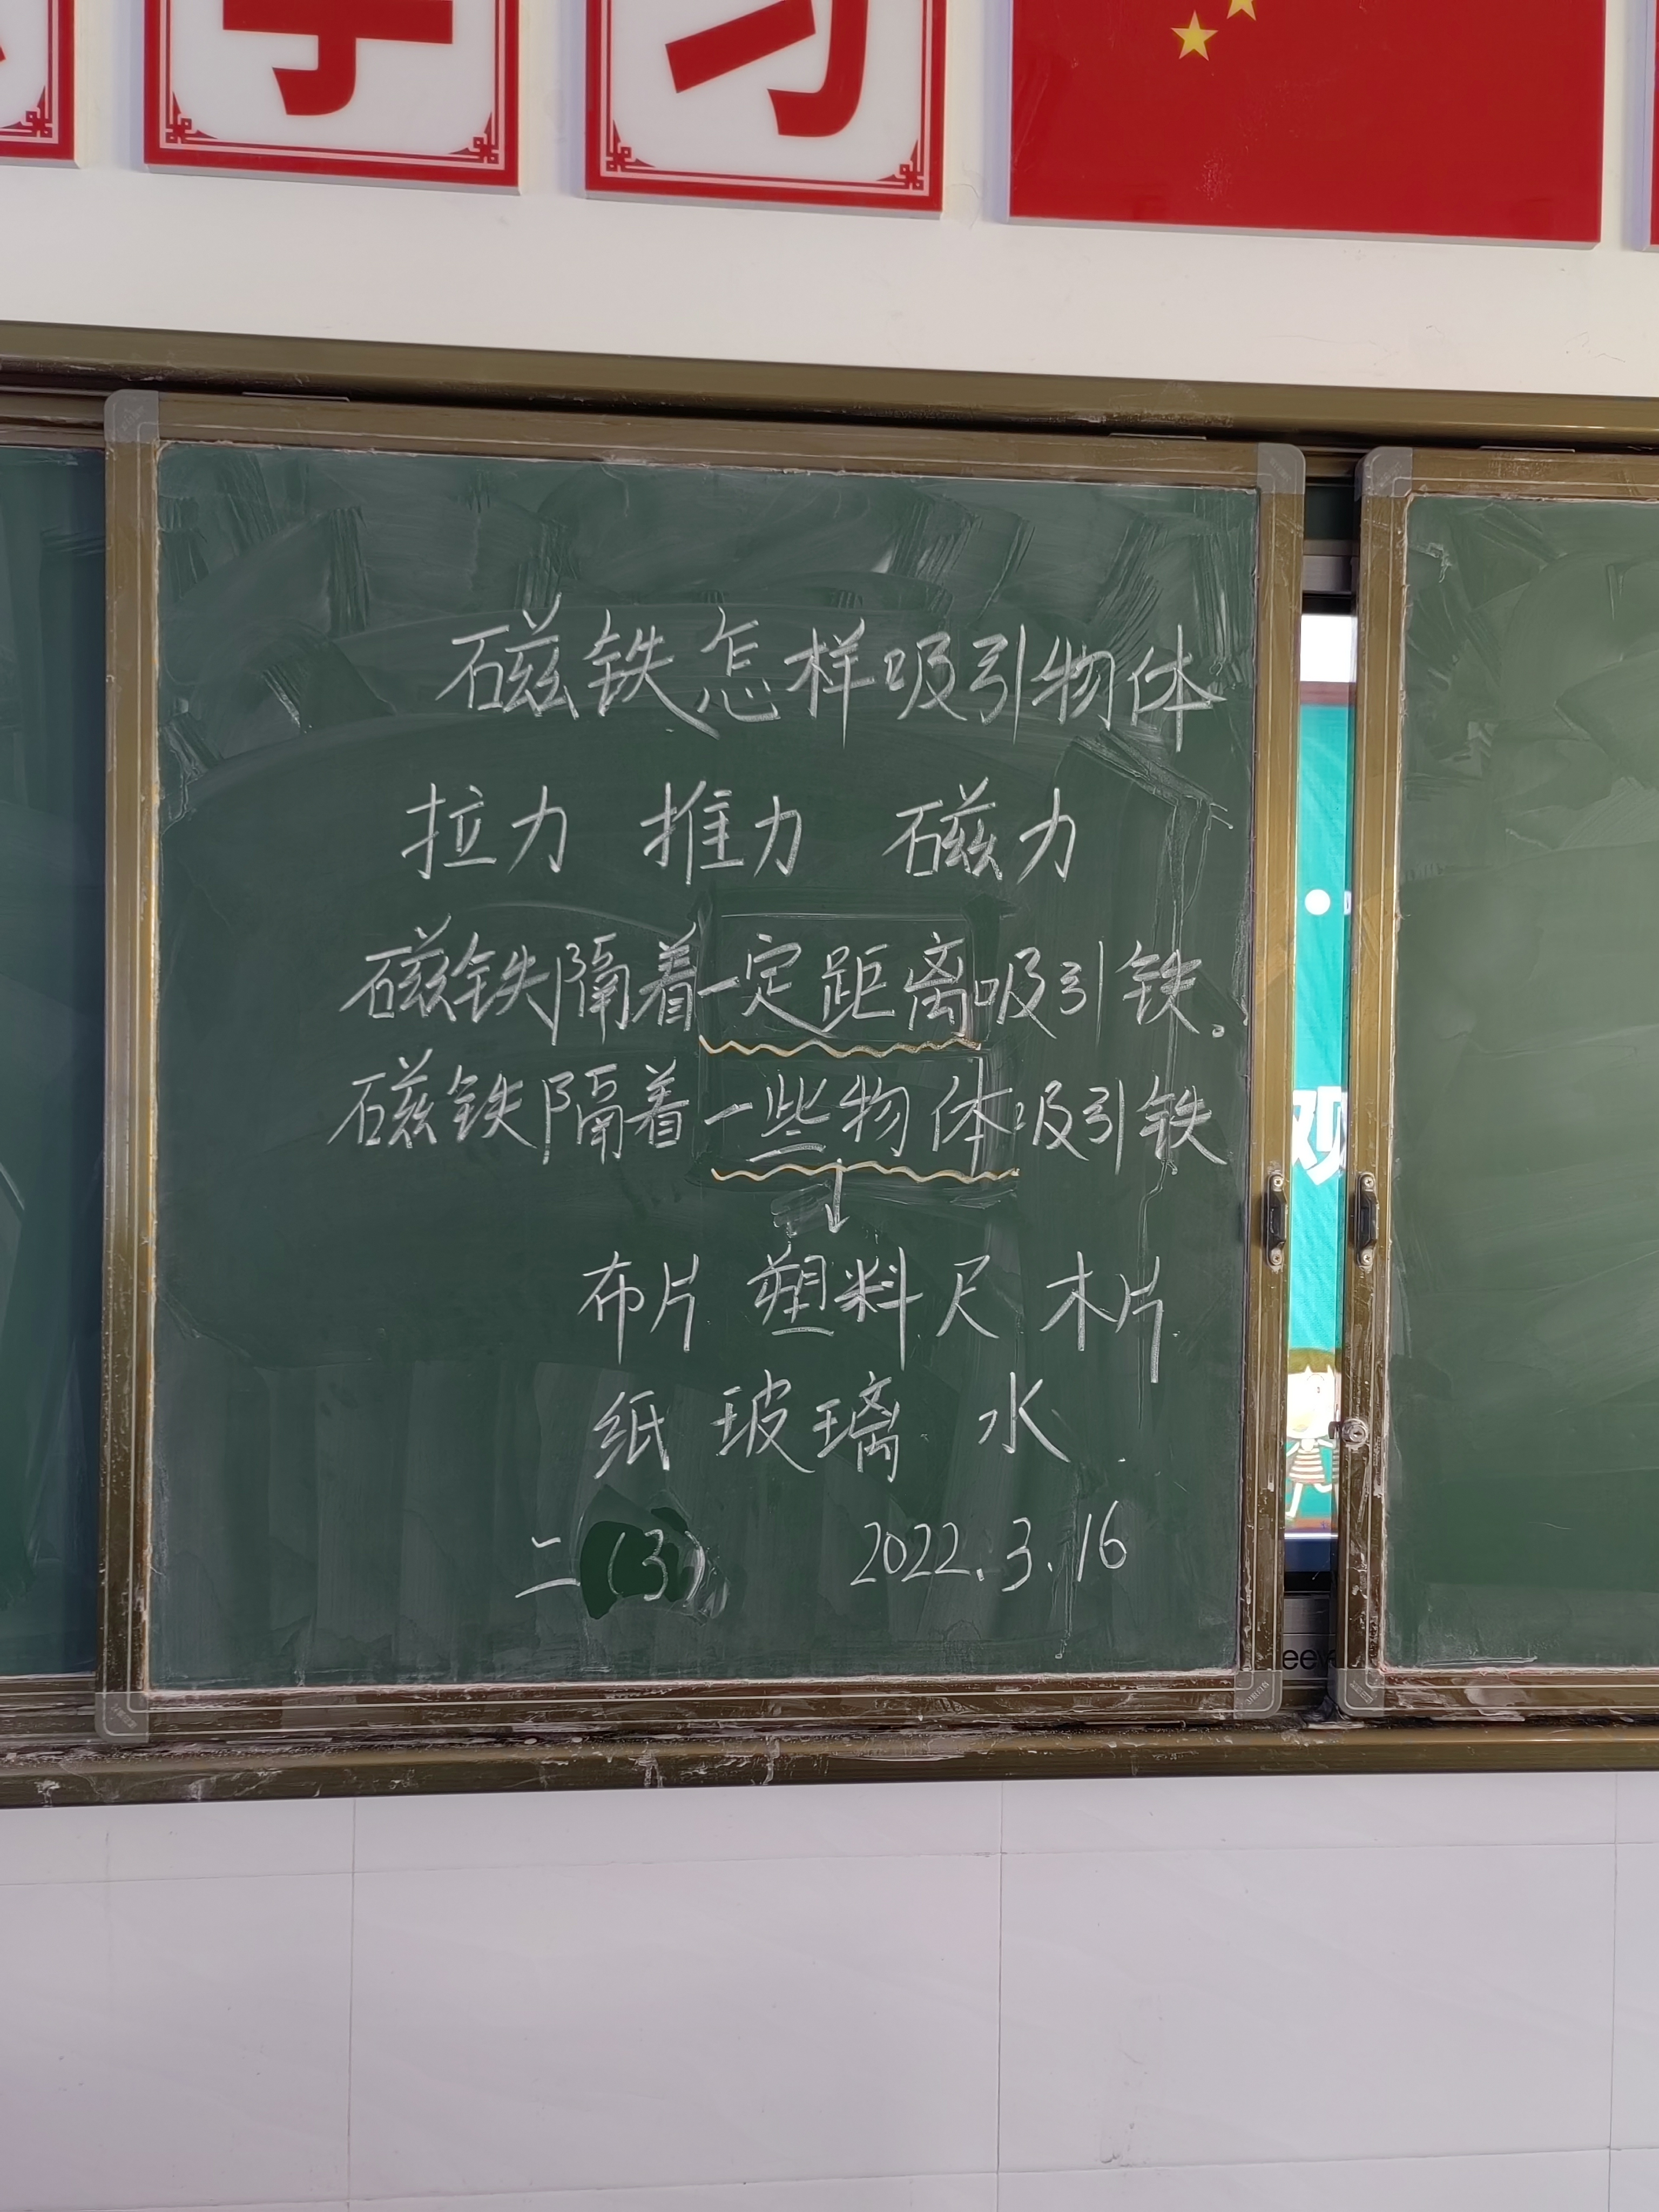 学 习
磁铁怎样吸引物体
拉力 推力 磁力
磁铁隔着一定距离吸引铁。
磁铁隔着一些物体吸引铁
↓
布片 塑料尺 木片
纸 玻璃 水
二(3) 2022.3.16
观